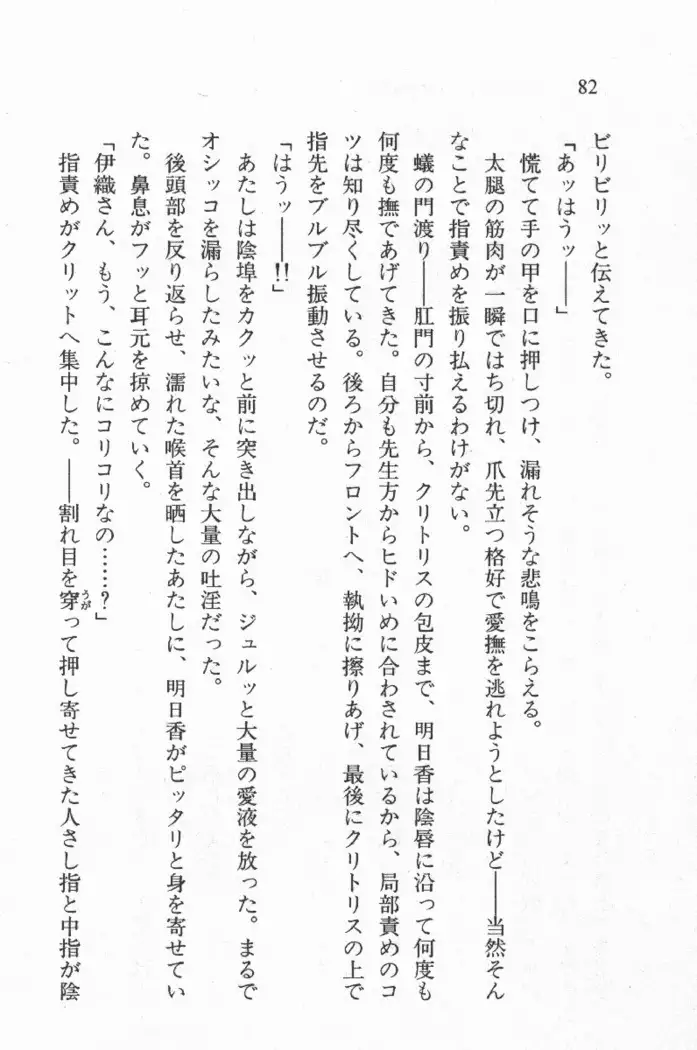 82
ビリビリッと伝えてきた。
「あッはうッ――」
慌てて手の甲を口に押しつけ、漏れそうな悲鳴をこらえる。
太腿の筋肉が一瞬ではち切れ、爪先立つ格好で愛撫を逃れようとしたけど――当然そん
なことで指責めを振り払えるわけがない。
蟻の門渡り――肛門の寸前から、クリトリスの包皮まで、明日香は陰唇に沿って何度も
何度も撫であげてきた。自分も先生方からヒドいめに合わされているから、局部責めのコ
ツは知り尽くしている。後ろからフロントへ、執拗に擦りあげ、最後にクリトリスの上で
指先をブルブル振動させるのだ。
「はうッ――!!」
あたしは陰埠をカクッと前に突き出しながら、ジュルッと大量の愛液を放った。まるで
オシッコを漏らしたみたいな、そんな大量の吐淫だった。
後頭部を反り返らせ、濡れた喉首を晒したあたしに、明日香がピッタリと身を寄せてい
た。鼻息がフッと耳元を掠めていく。
「伊織さん、もう、こんなにコリコリなの……?」
指責めがクリットへ集中した。――割れ目を穿うがって押し寄せてきた人さし指と中指が陰